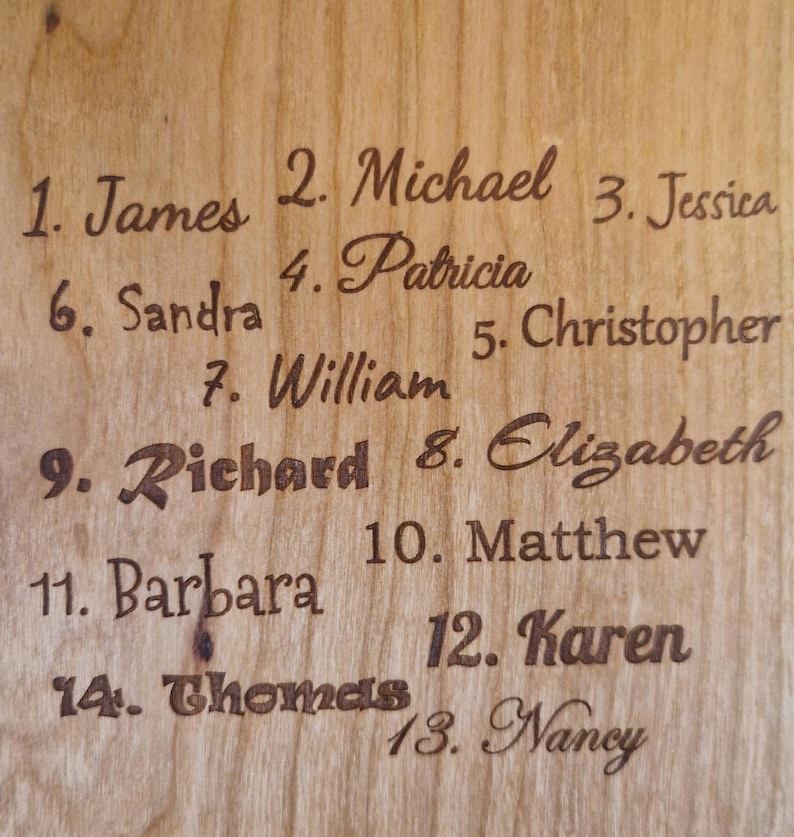 1. James
2. Michael
3. Jessica
4. Patricia
6. Sandra
5. Christopher
7. William
9. Richard
8. Elizabeth
10. Matthew
11. Barbara
12. Karen
14. Thomas
13. Nancy